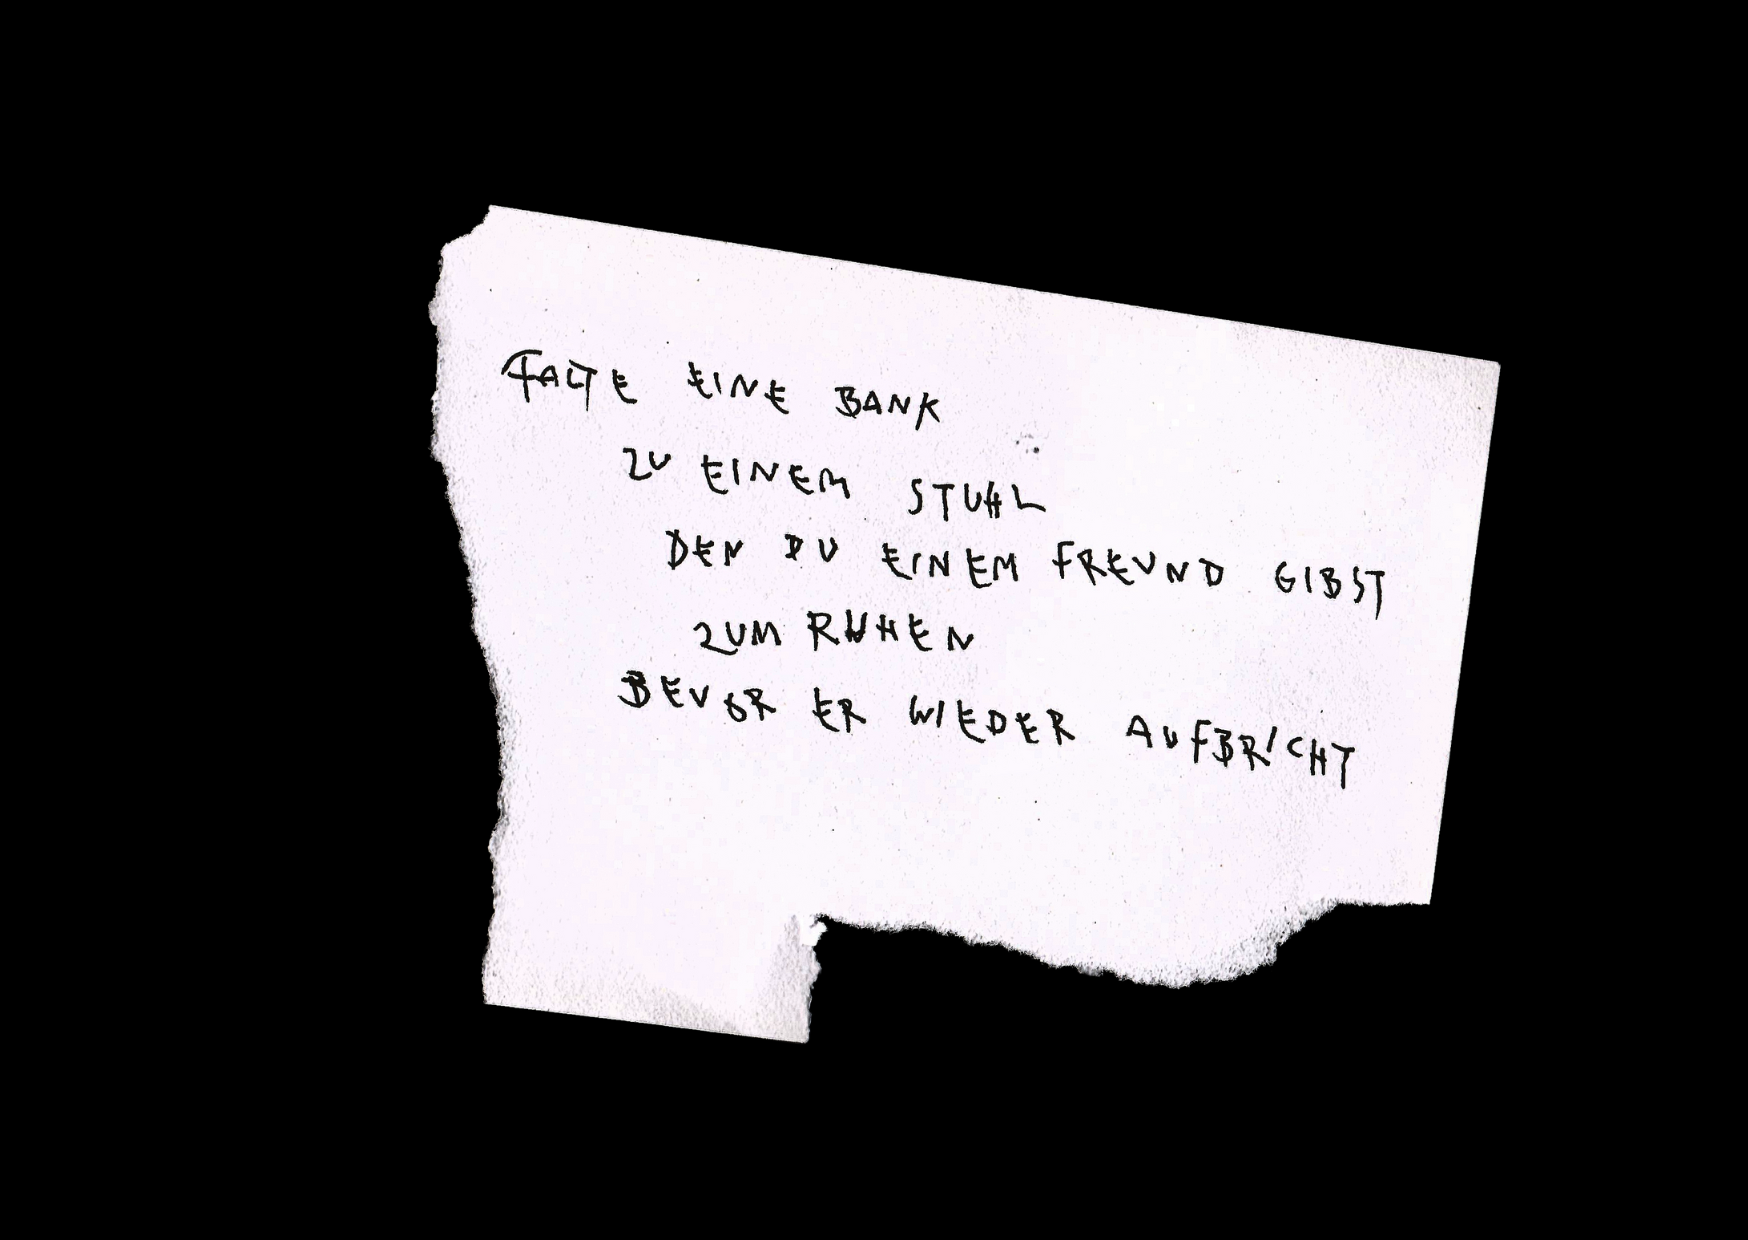 FALTE EINE BANK
ZU EINEM STUHL
DEN DU EINEM FREUND GIBST
ZUM RUHEN
BEVOR ER WIEDER AUFBRICHT